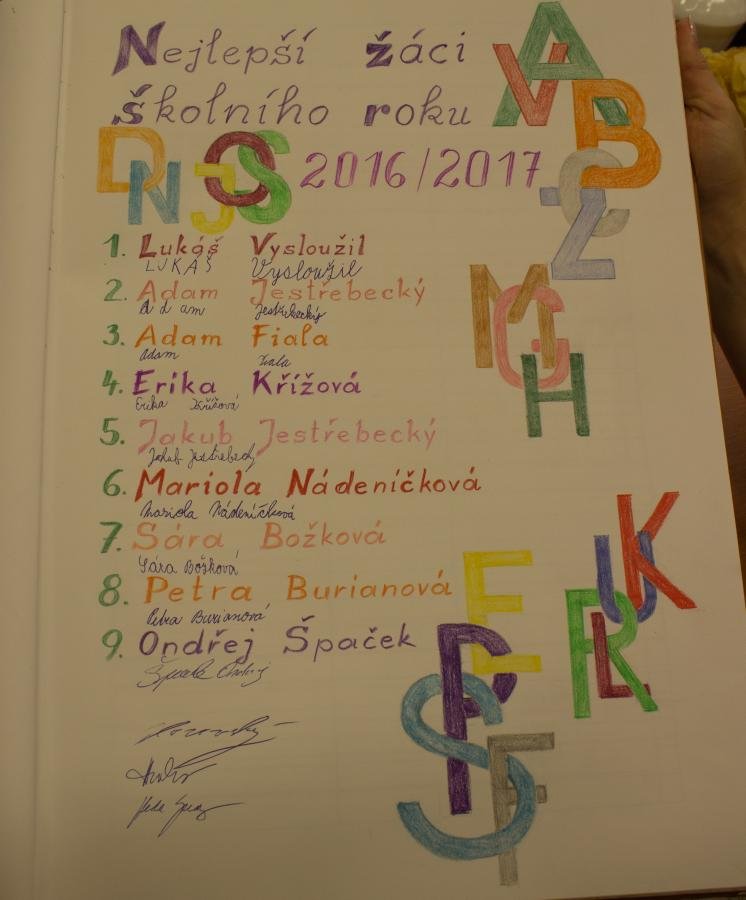 Nejlepší žáci
školního roku
2016/2017
1. Lukáš Vysloužil
LUKÁŠ Vysloužil
2. Adam Jestřebecký
Adam Jestřebecký
3. Adam Fiala
Adam Fiala
4. Erika Křížová
Erika Křížová
5. Jakub Jestřebecký
Jakub Jestřebecký
6. Mariola Nádeníčková
Mariola Nádeníčková
7. Sára Božková
Sára Božková
8. Petra Burianová
Petra Burianová
9. Ondřej Špaček
Špaček Ondřej
A
V
B
D
N
J
O
S
C
Z
M
G
H
K
U
R
L
E
P
S
F